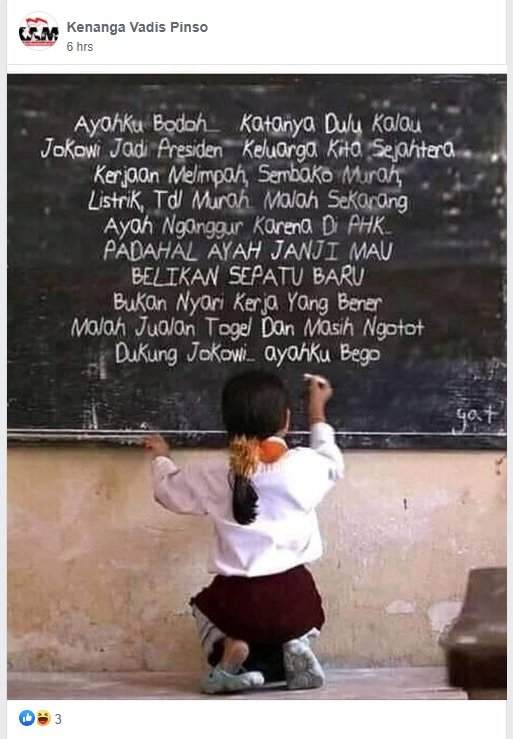 Kenanga Vadis Pinso
6 hrs
Ayahku Bodoh... Katanya Dulu Kalau
Jokowi Jadi Presiden Keluarga Kita Sejahtera
Kerjaan Melimpah, Sembako Murah,
Listrik, Tdl Murah Malah Sekarang
Ayah Nganggur Karena Di PHK...
PADAHAL AYAH JANJI MAU
BELIKAN SEPATU BARU
Bukan Nyari Kerja Yang Bener
Malah Jualan Togel Dan Masih Ngotot
Dukung Jokowi... ayahku Bego
yat
3